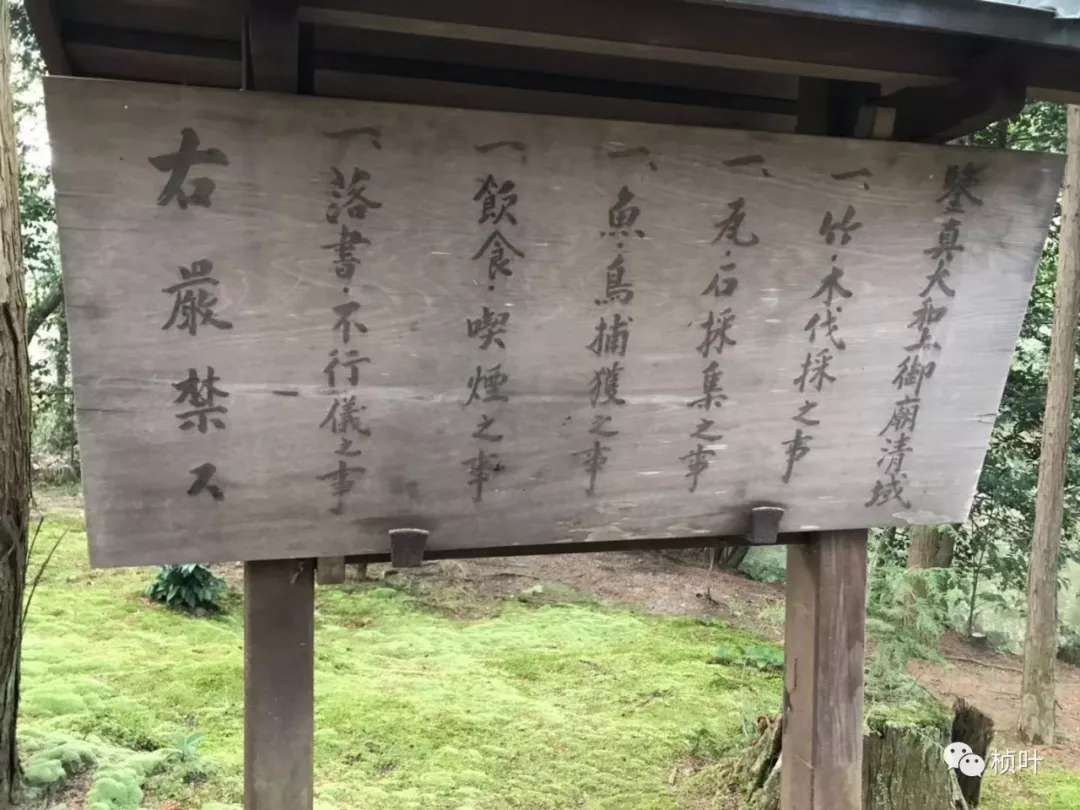 鑒真大和上御廟清域
一、竹・木伐採之事
一、瓦・石採集之事
一、魚・鳥捕獲之事
一、飲食・喫煙之事
一、落書・不行儀之事
右厳禁ス
桢叶